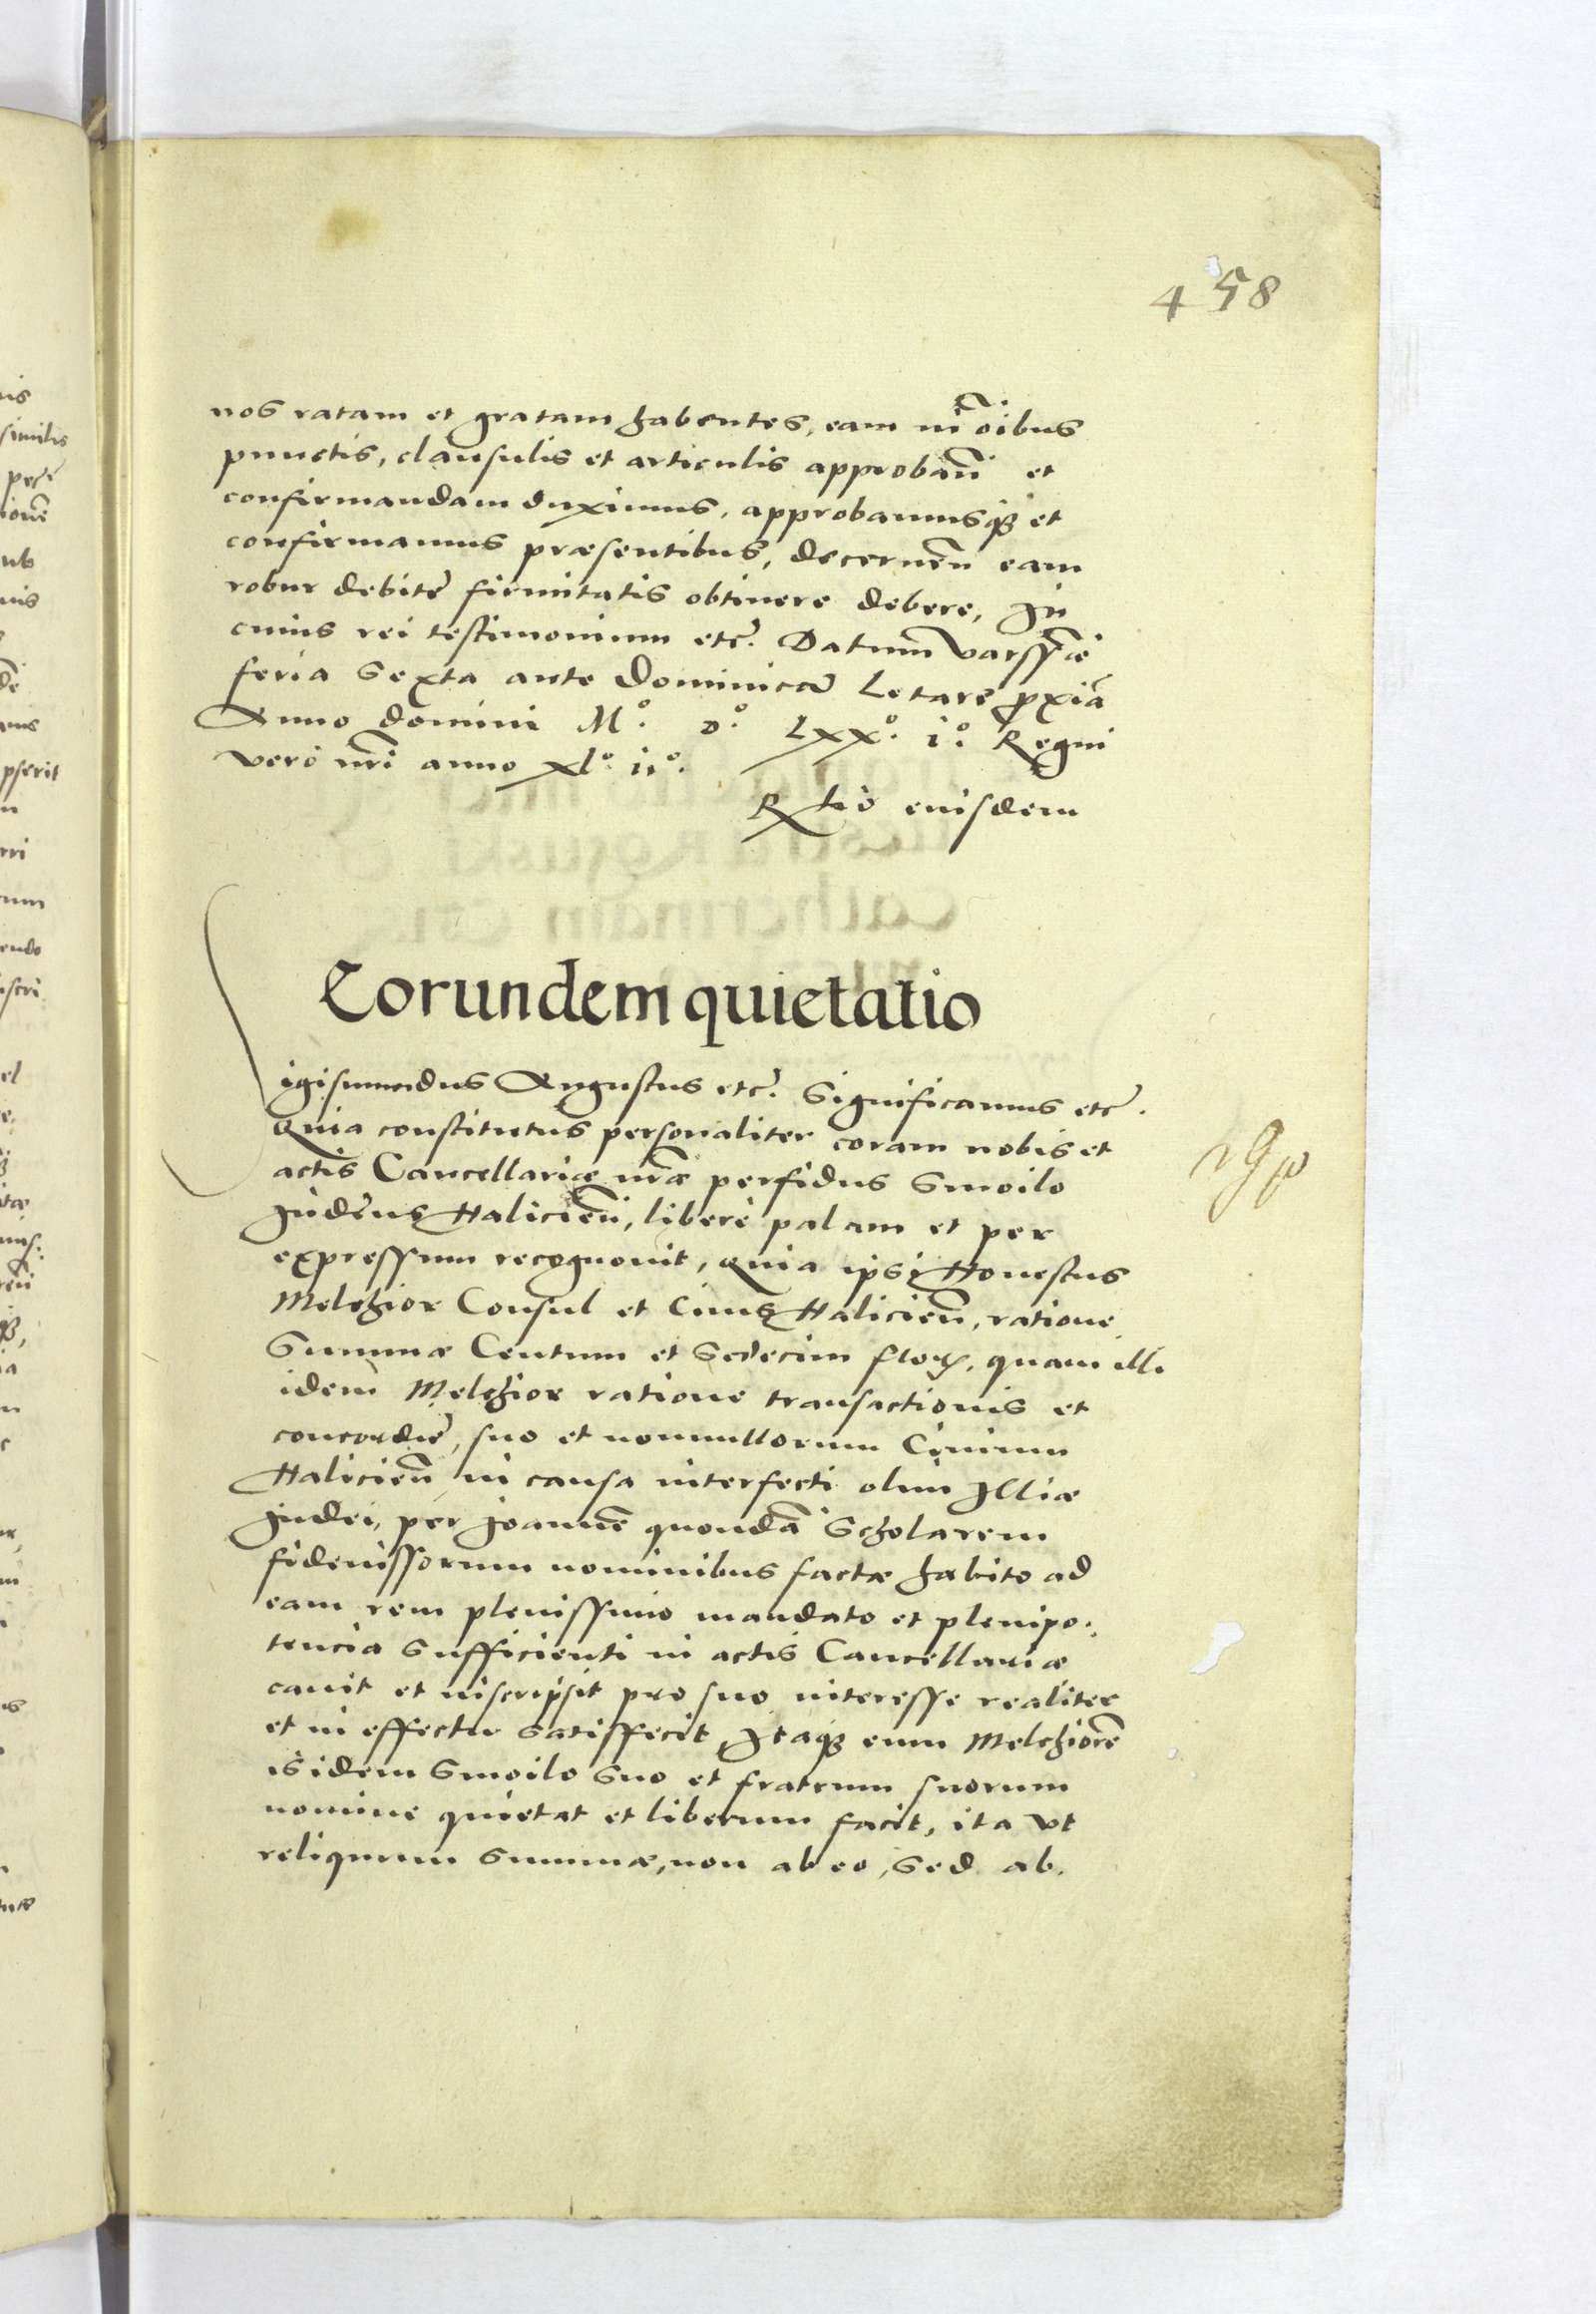 458
nos ratam et gratam habentes, eam in oĩbus
punctis, clausulis et articulis approbañ et
confirmandam duximus, approbamusqȝ et
confirmamus præsentibus, decerneñ eam
robur debitę firmitatis obtinere debere, In
cuius rei testimonium etc̃. Datum Varssaviæ
feria Sexta ante Dominicã Letare p̱xiã
Anno domini Mº. Dº. Lxxº. iº. Regni
vero nr̃i anno xlº. iiº.
Rlũo eiusdem
Eorundem quietatio
igismundus Augustus etc̃. Significamus etc̃.
Quia constitutus personaliter coram nobis et
actis Cancellariæ nr̃æ perfidus Smoilo
Judeus Halicieñ, liberè palam et per
expressum recognouit, Quia ipsi Honestus
Melchior Consul et Ciuis Halicieñ, ratione
Summæ Centum et Sedecim floꝝ, quam illi
idem Melchior ratione transactionis et
concordię, suo et nonnullorum Ciuium
Halicieñ in causa interfecti olim Illiæ
Judei, per Joannẽ quondã Scholarem
fideiussorum nominibus factæ habito ad
eam rem plenissimo mandato et plenipo:
tencia Sufficienti in actis Cancellariæ
cauit et inscripsit pro suo interesse realiter
et in effectu satisfecit, Itaqȝ eum Melchiorẽ
is idem Smoilo suo et fratrum suorum
nomine quietat et liberum facit, ita vt
reliquum Summæ, non ab eo, sed ab.